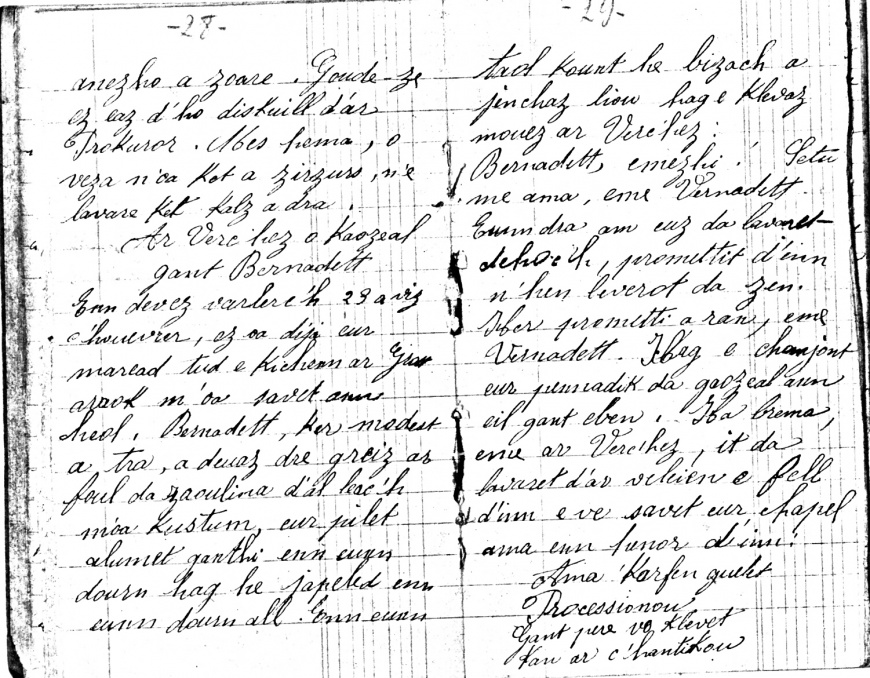 -28-
anezho a zoare. Goude-ze
ez eaz d'ho diskuill d'ar
Prokuror. Mes hema, o
veza n'oa Ket a zirzurs, ne
lavare Ket Kalz a dra.
Ar Verc'hez o Kaozeal
gant Bernadett
Enn devez varlerc'h 23 a viz
c'houevrer, ez oa diji eur
maread tud e Kichenn ar
araok m'oa savet ann
heol. Bernadett, Ker modest
a tra, a deuaz dre greiz ar
foul da zaoulina d'al leac'h
m'oa Kustum, eur pilet
alumet ganthi enn eunn
dourn hag he japeled enn
eunn dourn all. Enn eunn
-29-
taol Kount he bizach a
jenchaz liou hag e Klevaz
mouez ar Verc'hez:
Bernadett, emezhi! Setu
me ama, eme Vernadett.
Eunn dra am euz da lavaret
dehoc'h, promettit d'inn
n'hen leverot da zen.
Her prometti a ran, eme
Vernadett. Hag e chanjont
eur pennadik da gaozeal ann
eil gant eben. Ha brema,
eme ar Verc'hez, it da
lavaret d'ar veleien e fell
d'inn e ve savet eur chapel
ama enn hunor d'inn!
Ama Karfen guelet
Processionou
Gant pere vo Klevet
Kan ar c'hantikou